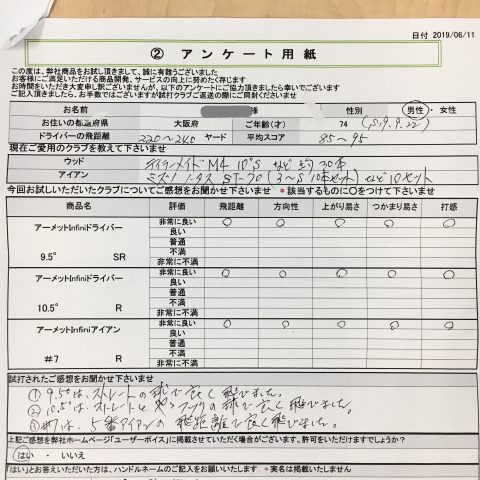 日付 2019/06/11
② アンケート用紙
この度は、弊社商品をお試し頂きまして、誠に有難うございました
お客様にご満足いただける商品開発、サービスの向上に努めたく存じます
お時間をいただき大変申し訳ございませんが、以下のアンケートにご協力頂きましたら幸いでございます
ご記入頂きましたら、お手数ではございますが試打クラブご返送の際にご同封くださいませ
お名前 様 性別 男性・女性
お住いの都道府県 大阪府 ご年齢(才) 74 (S19.9.22)
ドライバーの飛距離 220〜240 ヤード 平均スコア 85〜95
現在ご愛用のクラブを教えて下さいませ
ウッド テーラーメイドM4 10°S など約30本
アイアン ミズノ
今回お試しいただいたクラブについてご感想をお聞かせ下さいませ *該当するものに〇をつけて下さいませ
商品名 評価 飛距離 方向性 上がり易さ つかまり易さ 打感
アーメットInfiniドライバー 非常に良い 〇 〇 〇 〇 〇
良い
普通
9.5° SR 不満
非常に不満
アーメットInfiniドライバー 非常に良い 〇 〇 〇 〇 〇
良い
普通
10.5° R 不満
非常に不満
アーメットInfiniアイアン 非常に良い 〇 〇 〇 〇 〇
良い
普通
#7 R 不満
非常に不満
試打されたご感想をお聞かせ下さいませ
① 9.5°は、ストレートの球で良く飛びました。
② 10.5°は、ストレートとややフックの球で良く飛びました。
③ #7は、5番アイアンの飛距離で良く飛びました。
上記ご感想を弊社ホームページ「ユーザーボイス」に掲載させていただく場合がございます。許可をいただけますでしょうか?
はい ・ いいえ
「はい」とお答えいただいた方は、ハンドルネームのご記入をお願いいたします *実名は掲載いたしません